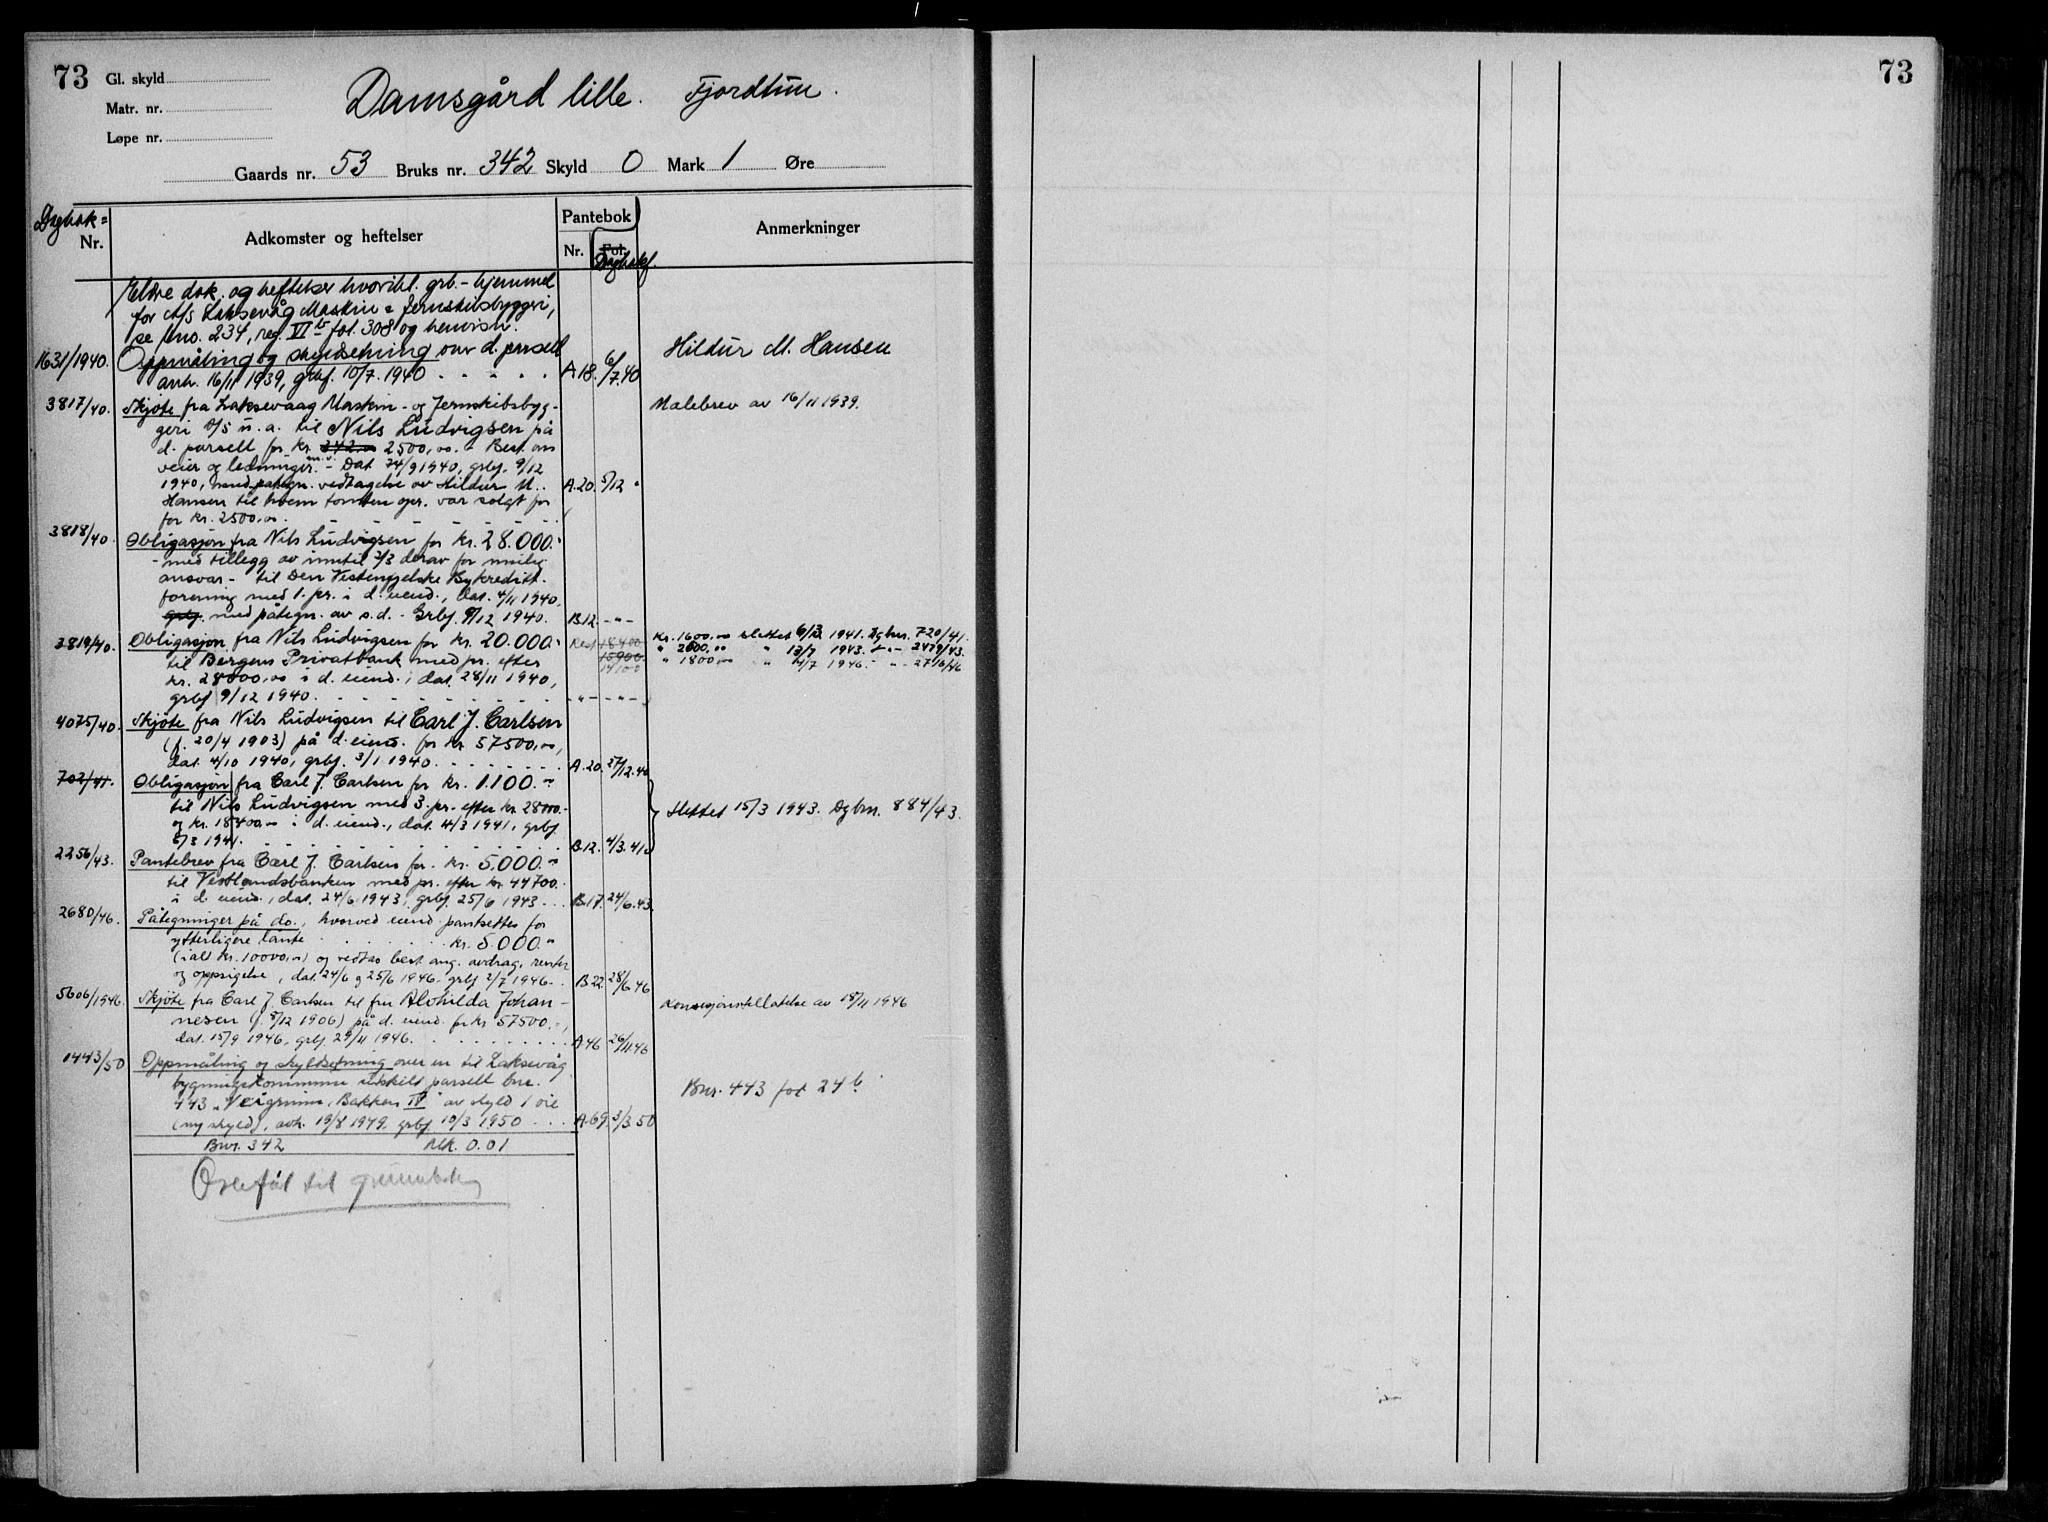 73
Gl. skyld
Matr. nr.
Løpe nr.
Damsgård lille. Fjordtun.
Gaards nr. 53 Bruks nr. 342 Skyld 0 Mark 1 Øre
Dagbok=
Nr.
Adkomster og heftelser
Pantebok
Nr.
Fol.
Dagbokf.
Anmerkninger
Eldre dok. og heftelser hvoribl. grb.-hjemmel
for A/S Laksevåg Maskin & Jernskibsbyggeri,
se bno. 234, reg. VI b fol. 308 og henvisn.
1631/1940. Oppmåling og skyldsetning over d. parsell
avh. 16/11 1939, grbf. 10/7. 1940 A 18. 6/7.40
Hildur M. Hansen
3817/40. Skjøte fra Laksevaag Maskin- og Jernskibsbyg-
geri A/S u. a. til Nils Ludvigsen på
d. parsell for kr. 342.00 2500,00. - Best. om
veier og ledninger m.v. - Dat. 24/9 1940, grbf. 9/12
1940, med påtegn. vedtagelse av Hildur M.
Hansen til hvem tomten opr. var solgt for
for kr. 2500,00.
A.20. 5/12 "
Målebrev av 16/11 1939.
3818/40. Obligasjon fra Nils Ludvigsen for kr. 28.000.-
- med tillegg av inntil 2/3 derav for mulig
ansvar - til Den Vestenfjelske Bykreditt-
forening med 1. pr. i d. eiend., dat. 4/11 1940,
grbf. med påtegn. av s.d. - Grbf. 9/12 1940. B.12. -"-
3819/40. Obligasjon fra Nils Ludvigsen for kr. 20.000.-
til Bergens Privatbank med pr. efter
kr. 28000,00 i d. eiend., dat. 28/11 1940,
grbf. 9/12 1940. -"- -"-
Rest 18400
15900.
14100
Kr. 1600,00 slettet 6/3 1941. Dgbnr. 720/41.
" 2500,00 " 13/7 1943. -"- 2479/43.
" 1800,00 " 14/7 1946. -"- 2716/46
4075/40. Skjøte fra Nils Ludvigsen til Carl J. Carlsen
(f. 20/4 1903) på d. eiend. for kr. 57500,00,
dat. 4/10 1940, grbf. 3/1 1940. A.20. 27/12.40
702/41. Obligasjon fra Carl J. Carlsen for kr. 1100.-
til Nils Ludvigsen med 3. pr. efter kr. 28000.-
og kr. 18400,00 i d. eiend., dat. 4/3 1941, grbf.
5/3 1941. B.12. 4/3.41
Slettet 15/3 1943. Dgbnr. 884/43.
2256/43. Pantebrev fra Carl J. Carlsen for kr. 5,000.-
til Vestlandsbanken med pr. efter kr. 44700.-
i d. eiend., dat. 24/6 1943, grbf. 25/6 1943 B.17. 24/6.43.
2680/46. Påtegninger på do., hvorved eiend. pantsettes for
ytterligere lånte kr. 5.000.-
(i alt kr. 10000,00) og vedtas best. ang. avdrag, renter
og oppsigelse, dat. 24/6 og 25/6 1946. grbf. 2/7 1946. B 22 28/6.46
5606/1946. Skjøte fra Carl J. Carlsen til fru Alvhilda Johan-
nesen (f. 5/12 1906) på d. eiend. for kr. 57500.-,
dat. 15/9 1946, grbf. 29/11 1946. A.46 26/11.46
Konsesjonstillatelse av 15/11 1946
1443/50 Oppmåling og skyldsetning over en til Laksevåg
bygningskommune utskilt parsell bnr.
443 "Veigrunn, Bakken IV" av skyld 1 øre
(ny skyld), avh. 19/8 1949. grbf. 10/3 1950 A.69. 3/3.50
Bnr. 443 fol 24 b.
Bnr. 342 Mk. 0.01
Overført til grunnbok
73